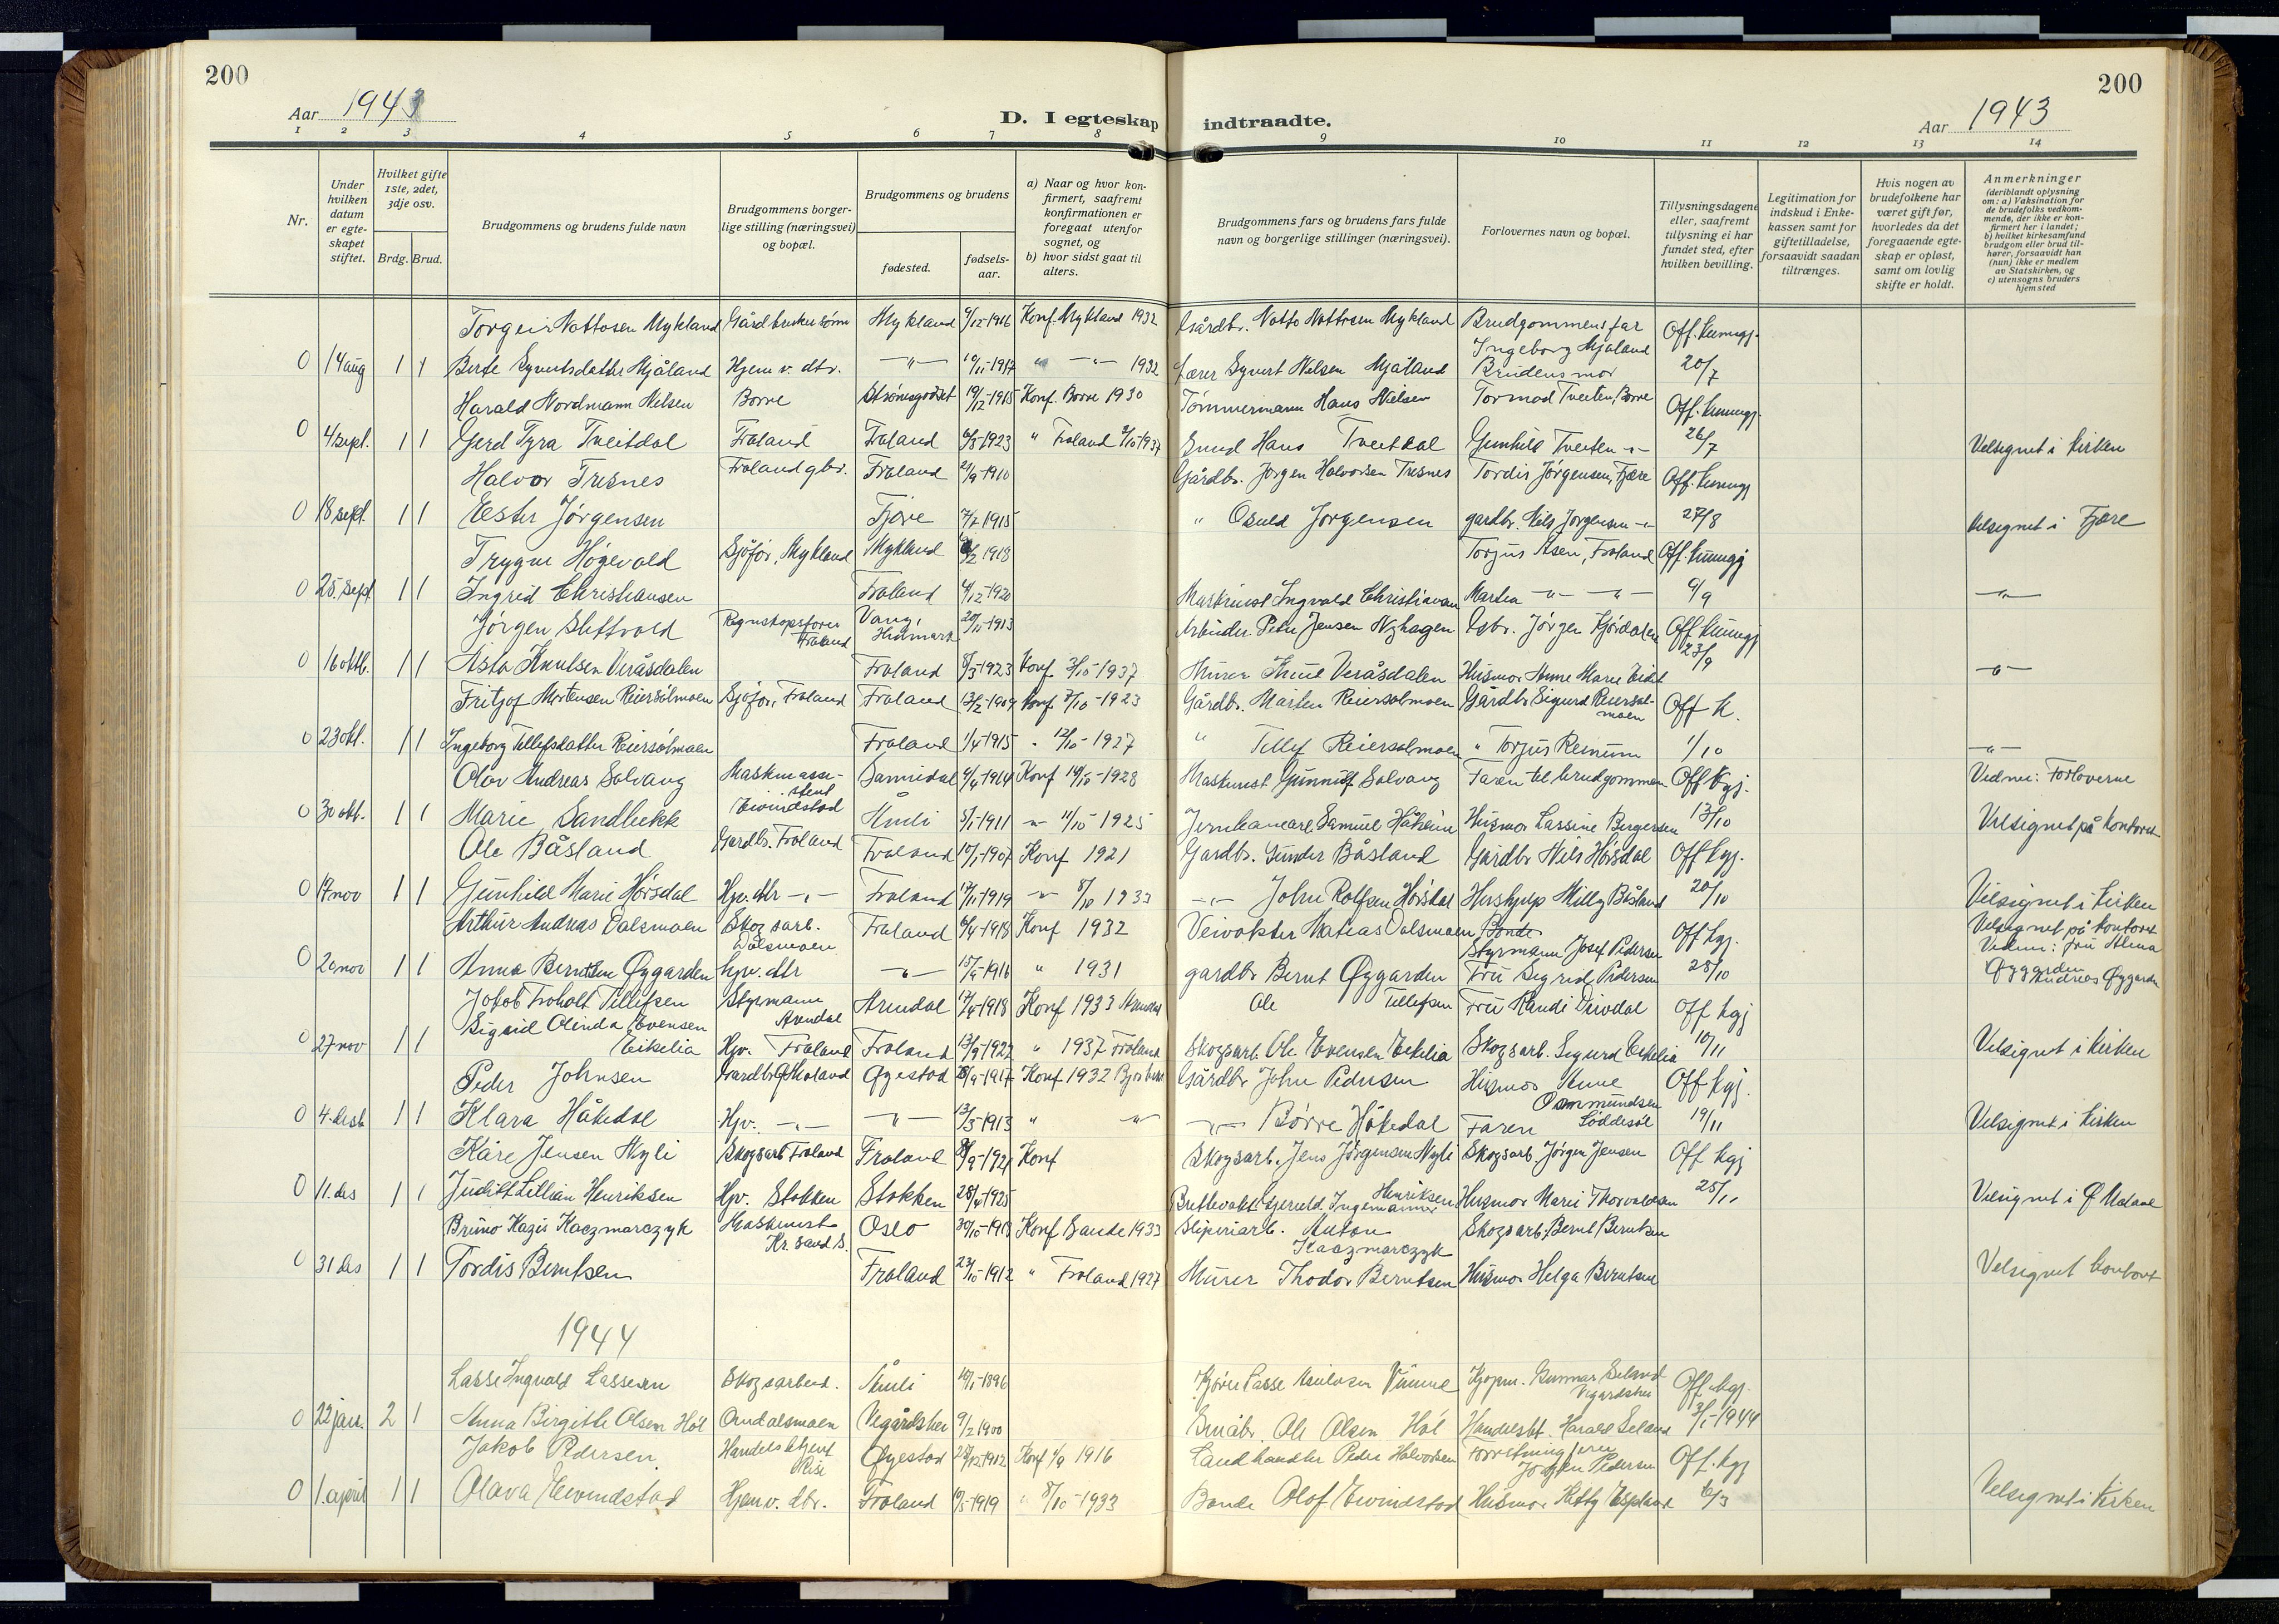 200
Aar 1943
D. I egteskap indtraadte.
Aar 1943
200
1 2 3 4 5 6 7 8 9 10 11 12 13 14
Nr.
Under hvilken datum er egteskapet stiftet.
Hvilket gifte 1ste, 2det, 3dje osv.
Brdg. Brud.
Brudgommens og brudens fulde navn
Brudgommens borgerlige stilling (næringsvei) og bopæl.
Brudgommens og brudens
fødested.
fødselsaar.
a) Naar og hvor konfirmert, saafremt konfirmationen er foregaat utenfor sognet, og
b) hvor sidst gaat til alters.
Brudgommens fars og brudens fars fulde navn og borgerlige stillinger (næringsvei).
Forlovernes navn og bopæl.
Tillysningsdagene eller, saafremt tillysning ei har fundet sted, efter hvilken bevilling.
Legitimation for indskud i Enkekassen samt for giftetilladelse, forsaavidt saadan tiltrænges.
Hvis nogen av brudefolkene har været gift før, hvorledes da det foregaaende egteskap er opløst, samt om lovlig skifte er holdt.
Anmerkninger
(deriblandt oplysning om: a) Vaksination for de brudefolks vedkommende, der ikke er konfirmert her i landet;
b) hvilket kirkesamfund brudgom eller brud tilhører, forsaavidt han (hun) ikke er medlem av Statskirken, og
c) utensogns bruders hjemsted
Torgeir Nottosen Mykland Gårdbrukersønn Mykland 1916 Konf. Mykland 1932 Gårdbr. Notto Nottosen Mykland Brudgommens far Off. kunngj.
0 14 aug 1 1 Berte Syvertsdatter Mjåland Hjemv. dtr. -"- 10/11-1917 " -"- 1932 Lærer Syvert Nilsen Mjåland Ingeborg Mjåland Brudens mor 20/7
Harald Nordmann Nilsen Borre Strømsgodset 19/12-1915 Konf. Borre 1930 Tömmermann Hans Nielsen Tormod Tveiten, Borre Off. kunngj.
0 4 sept. 1 1 Gerd Tyra Tveitdal Froland Froland 6/8-1923 " Froland 3/10-1937 Smed Hans Tveitdal Gunhild Tveiten -"- 26/7 Velsignet i kirken
Halvor Tresnes Froland gbr. Froland 21/9-1910 Gårdbr. Jørgen Halvorsen Tresnes Tordis Jørgensen, Fjære Off. kunngj
0 18 sept. 1 1 Ester Jørgensen Fjære 7/2 1915 " Osuld Jørgensen gardbr. Nils Jørgensen -"- 27/8 Velsignet i Fjære
Trygve Högevold Sjåfør, Mykland Mykland 1918 Torjus Åsen, Froland Off. kunngj
0 25. sept 1 1 Ingrid Christiansen Froland 4/12-1920 Maskinist Ingvald Christiansen Martha -"- -"- 9/9 -"-
Jørgen Slettvold Regnskapsfører Froland Vang, Hedmark 20/11-1913 Arbeider Peder Jensen Nyhagen Gbr. Jørgen Fjørdalen Off kunngj
0 16 oktb. 1 1 Asta Knutsen Veråsdalen Froland 8/3-1923 Konf. 3/10-1937 Murer Knut Veråsdalen Husmor Anne Marie Eidet 23/9 -"-
Fritjof Mortensen Reiersölmoen Sjåfør, Froland Froland 13/2-1909 Konf. 7/10-1923 Gårdbr. Morten Reiersolmoen Gårdbr. Sigurd Reiersölmoen Off k.
0 23 okt. 1 1 Ingeborg Tellefsdatter Reiersölmoen Froland 1/4-1915 " 12/10-1927 " Tellef Reiersolmoen " Torjus Reinum 1/10 -"-
Olav Andreas Solvang Maskinassistent Sannidal 6/4-1914 Konf 14/10-1928 Maskinist Gunnulf Solvang Faren til brudgommen Off kgj. Vidner: Forloverne
0 30 okt. 1 1 Marie Sandbekk Eivindstad Åmli 8/1-1911 -"- 11/10-1925 Jernbanearb. Samuel Håheim Husmor Lassine Birgersen 13/10 Velsignet på kontoret
Ole Båsland Gardbr. Froland Froland 10/1-1907 Konf 1921 Gardbr. Gunder Båsland Gårdbr Nils Hörsdal Off kgj.
0 17 nov 1 1 Gunhild Marie Hörsdal Hjv. dtr -"- Froland 17/1-1919 -"- 8/10 1933 -"- John Rolfsen Hörsdal Hushjelp Milly Båsland 20/10 Velsignet i kirken
Arthur Andreas Dalsmoen Skogsarb. Dalsmoen Froland 6/4-1918 Konf 1932 Veivokter Matias Dalsmoen / Bonde Styrmann Josef Pedersen Off kgj. Velsignet på kontoret
0 20 nov 1 1 Anna Berntsen Øygarden hjv. dtr -"- 15/9-1916 " 1931 gardbr Bernt Øygarden Fru Sigrid Pedersen 28/10 Vidner: fru Alma Øygarden Andreas Øygarden
Jakob Froholt Tellefsen Styrmann Arendal Arendal 17/4-1918 Konf 1933 Arendal Ole Tellefsen Fru Randi Duvdal Off kgj
0 27 nov 1 1 Sigrid Olinda Evensen Eikelia Hjv. Froland Froland 13/9-1922 " 1937 Froland Skogsarb. Ole Evensen Eikelia Skogsarb. Sigurd Eikelia 10/11 Velsignet i kirken
Peder Johnsen Gardbr Ø Moland Øyestad 1917 Konf 1932 Gårdbr John Pedersen Husmor Anne Osmundsen Off kgj.
0 4. desb 1 1 Klara Håkedal Hjv. -"- -"- 13/3-1913 " -"- -"- Börre Håkedal Faren Löddesöl 19/11 Velsignet i kirken
Kåre Jensen Nyli Skogsarb Froland Froland 8/9-1921 Konf Skogsarb. Jens Jørgensen Nyli Skogsarb. Jørgen Jensen Off kgj
0 11. des 1 1 Judith Lillian Henriksen Hjv. Stokken Stokken 28/4-1925 Gjeruld Ingemann Henriksen Husmor Marie Thorvaldsen 25/11 Velsignet i Ø Moland
Bruno Kazis Kaczmarczyk Maskinist Kr. sand S. Oslo 30/10-1918 Konf Sande 1933 Sliperiarb. Anton Kaczmarczyk Skogsarb. Bernt Berntsen
0 31 des 1 1 Tordis Berntsen Froland 23/10-1912 " Froland 1927 Murer Thodor Berntsen Husmor Helga Berntsen Velsignet kontoret
1944
Lasse Ingvald Lassesen Skogsarbeid. Åmli 10/1-1896 Lasse Vimme Kjøpm. Gunnar Seland Vegårdshei Off. kgj.
0 22 jan. 2 1 Anna Birgitte Olsen Höl Oondalsmoen Vegårdshei 9/2 1900 Småbr. Ole Olsen Höl Handelsbt. Harald Seland 3/1-1944
Jakob Pedersen Handelsbetjent Øyestad 28/12-1912 Konf 1916 Landhandler Peder Halvorsen Jørgen Pedersen Off. kgj
0 1. april 1 1 Olava Eivindstad Hjemv. dtr. Froland 1919 " 8/10-1933 Bonde Olof Eivindstad Husmor Kitty Espeland 6/3 Velsignet i kirken